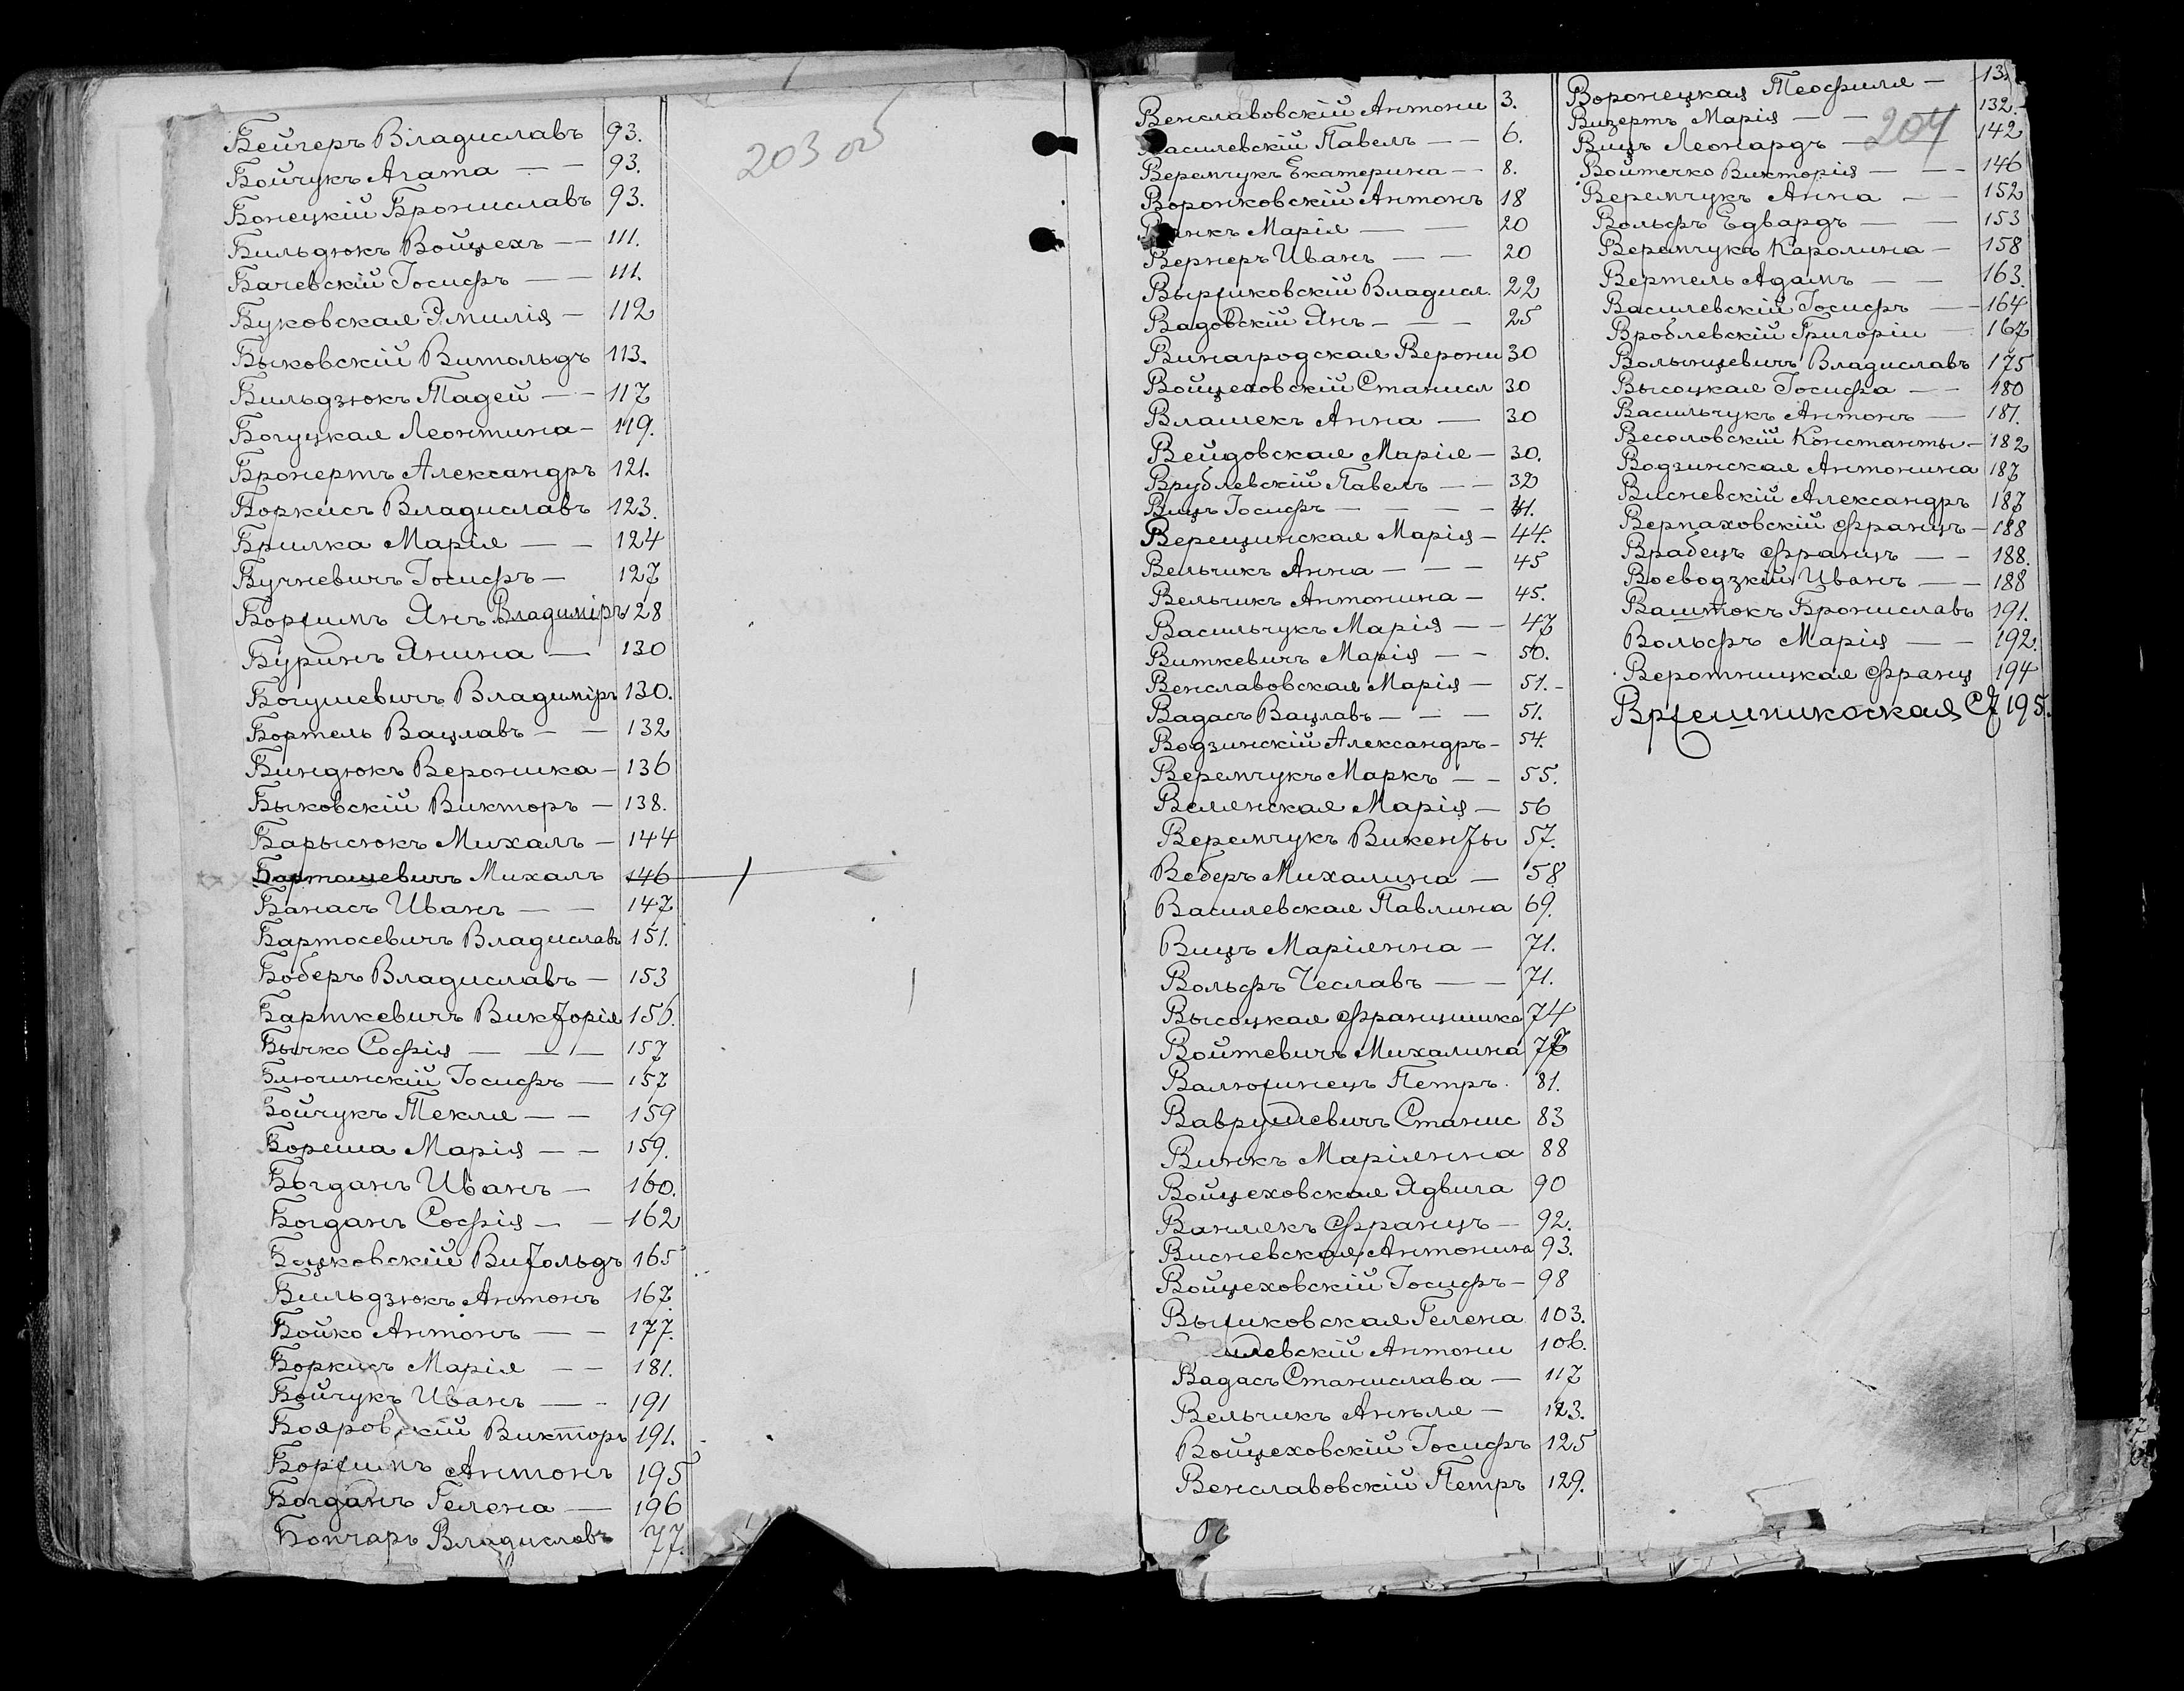 203 об
Бейгеръ Владиславъ 93.
Бойчукъ Агата — — 93.
Бонецкій Брониславъ 93.
Бильдюкъ Войцехъ — — 111.
Бачевскій Іосифъ — — 111.
Буковская Эмилія — 112
Быковскій Витольдъ 113.
Бильдзюкъ Тадей — — 117
Богуцкая Леонтина — 119.
Бронертъ Александръ 121.
Боркисъ Владиславъ 123.
Брилка Марія — — 124
Бучневичъ Іосифъ — 127
Боржимъ Янъ Владиміръ 128
Буринъ Янина — 130
Богушевичъ Владиміръ 130.
Бортель Вацлавъ — — 132
Биндюкъ Вероника — 136
Быковскій Викторъ — 138.
Барысюкъ Михалъ — 144
Бартошевичъ Михалъ 146
Банасъ Иванъ — — 147
Бартосевичъ Владиславъ 151.
Боберъ Владиславъ — 153
Барткевичъ Викторія 156.
Бычко Софія — — — 157
Блючинскій Іосифъ — 157
Бойчукъ Текля — — 159
Бореша Марія — — 159.
Богданъ Иванъ — 160.
Богданъ Софія — — 162
Бацковскій Витольдъ 165
Бильдзюкъ Антонъ 167.
Бойко Антонъ — — 177.
Боркисъ Марія — — 181.
Бойчукъ Иванъ — — 191
Бояровскій Викторъ 191.
Боржимъ Антонъ 195
Богданъ Гелена — 196
Бончаръ Владиславъ 77.
204
Венславовскій Антони 3.
Василевскій Павелъ — — 6.
Веремчукъ Екатерина — — 8.
Воронковскій Антонъ 18
Марія — — 20
Вернеръ Иванъ — — 20
Выржиковскій Владисл. 22
Вадовскій Янъ — — — 25
Винагродская Верони 30
Войцеховскій Станисл 30
Влашекъ Анна — 30
Вейдовская Марія — 30.
Врублевскій Павелъ — — 32
Вицъ Іосифъ — — — — 41.
Верещинская Марія — 44.
Вельчикъ Анна — — — 45
Вельчикъ Антонина — 45.
Васильчукъ Марія — — 47
Виткевичъ Марія — — 50.
Венславовская Марія — 51. –
Вадасъ Вацлавъ — — — 51.
Водзинскій Александръ — 54.
Веремчукъ Маркъ — — 55.
Марія — 56
Веремчукъ Викенты 57.
Веберъ Михалина — 58
Василевская Павлина 69.
Вицъ Маріянна — 71.
Вольфъ Чеславъ — — 71.
Высоцкая Францишка 74
Войтевичъ Михалина
Валюжинецъ Петръ. 81.
Ваврушевичъ Станис 83
Винкъ Маріянна 88
Войцеховская Ядвига 90
Ванлекъ Францъ — 92.
Висневская Антонина 93.
Войцеховскій Іосифъ — 98
Выжиковская Гелена 103.
левскій Антони 106.
Вадасъ Станислава — 117
Вельчикъ Анъля — 123.
Войцеховскій Іосифъ 125
Венславовскій Петръ 129.
Воронецкая Теофиля —
Визертъ Марія — — 132. –
Вицъ Леонардъ — 142
Войтечко Викторія — — – 146
Веремчукъ Анна — — 152
Вольфъ Едвардъ — — 153
Веремчукъ Каролина — 158
Вертель Адамъ — — 163.
Василевскій Іосифъ — — 164
Вроблевскій Григоріи — 167
Волынцевичъ Владиславъ 175
Высоцкая Іосифа — — 180
Васильчукъ Антонъ — 181.
Весоловскій Константы — 182
Водзинская Антонина 187
Висневскій Александръ 187
Верпаховскій Францъ — 188
Врабецъ Францъ — — 188.
Воеводзкій Иванъ — — 188
Ваштокъ Брониславъ 191.
Вольфъ Марія — — 192.
Веротницкая Франц 194
195.